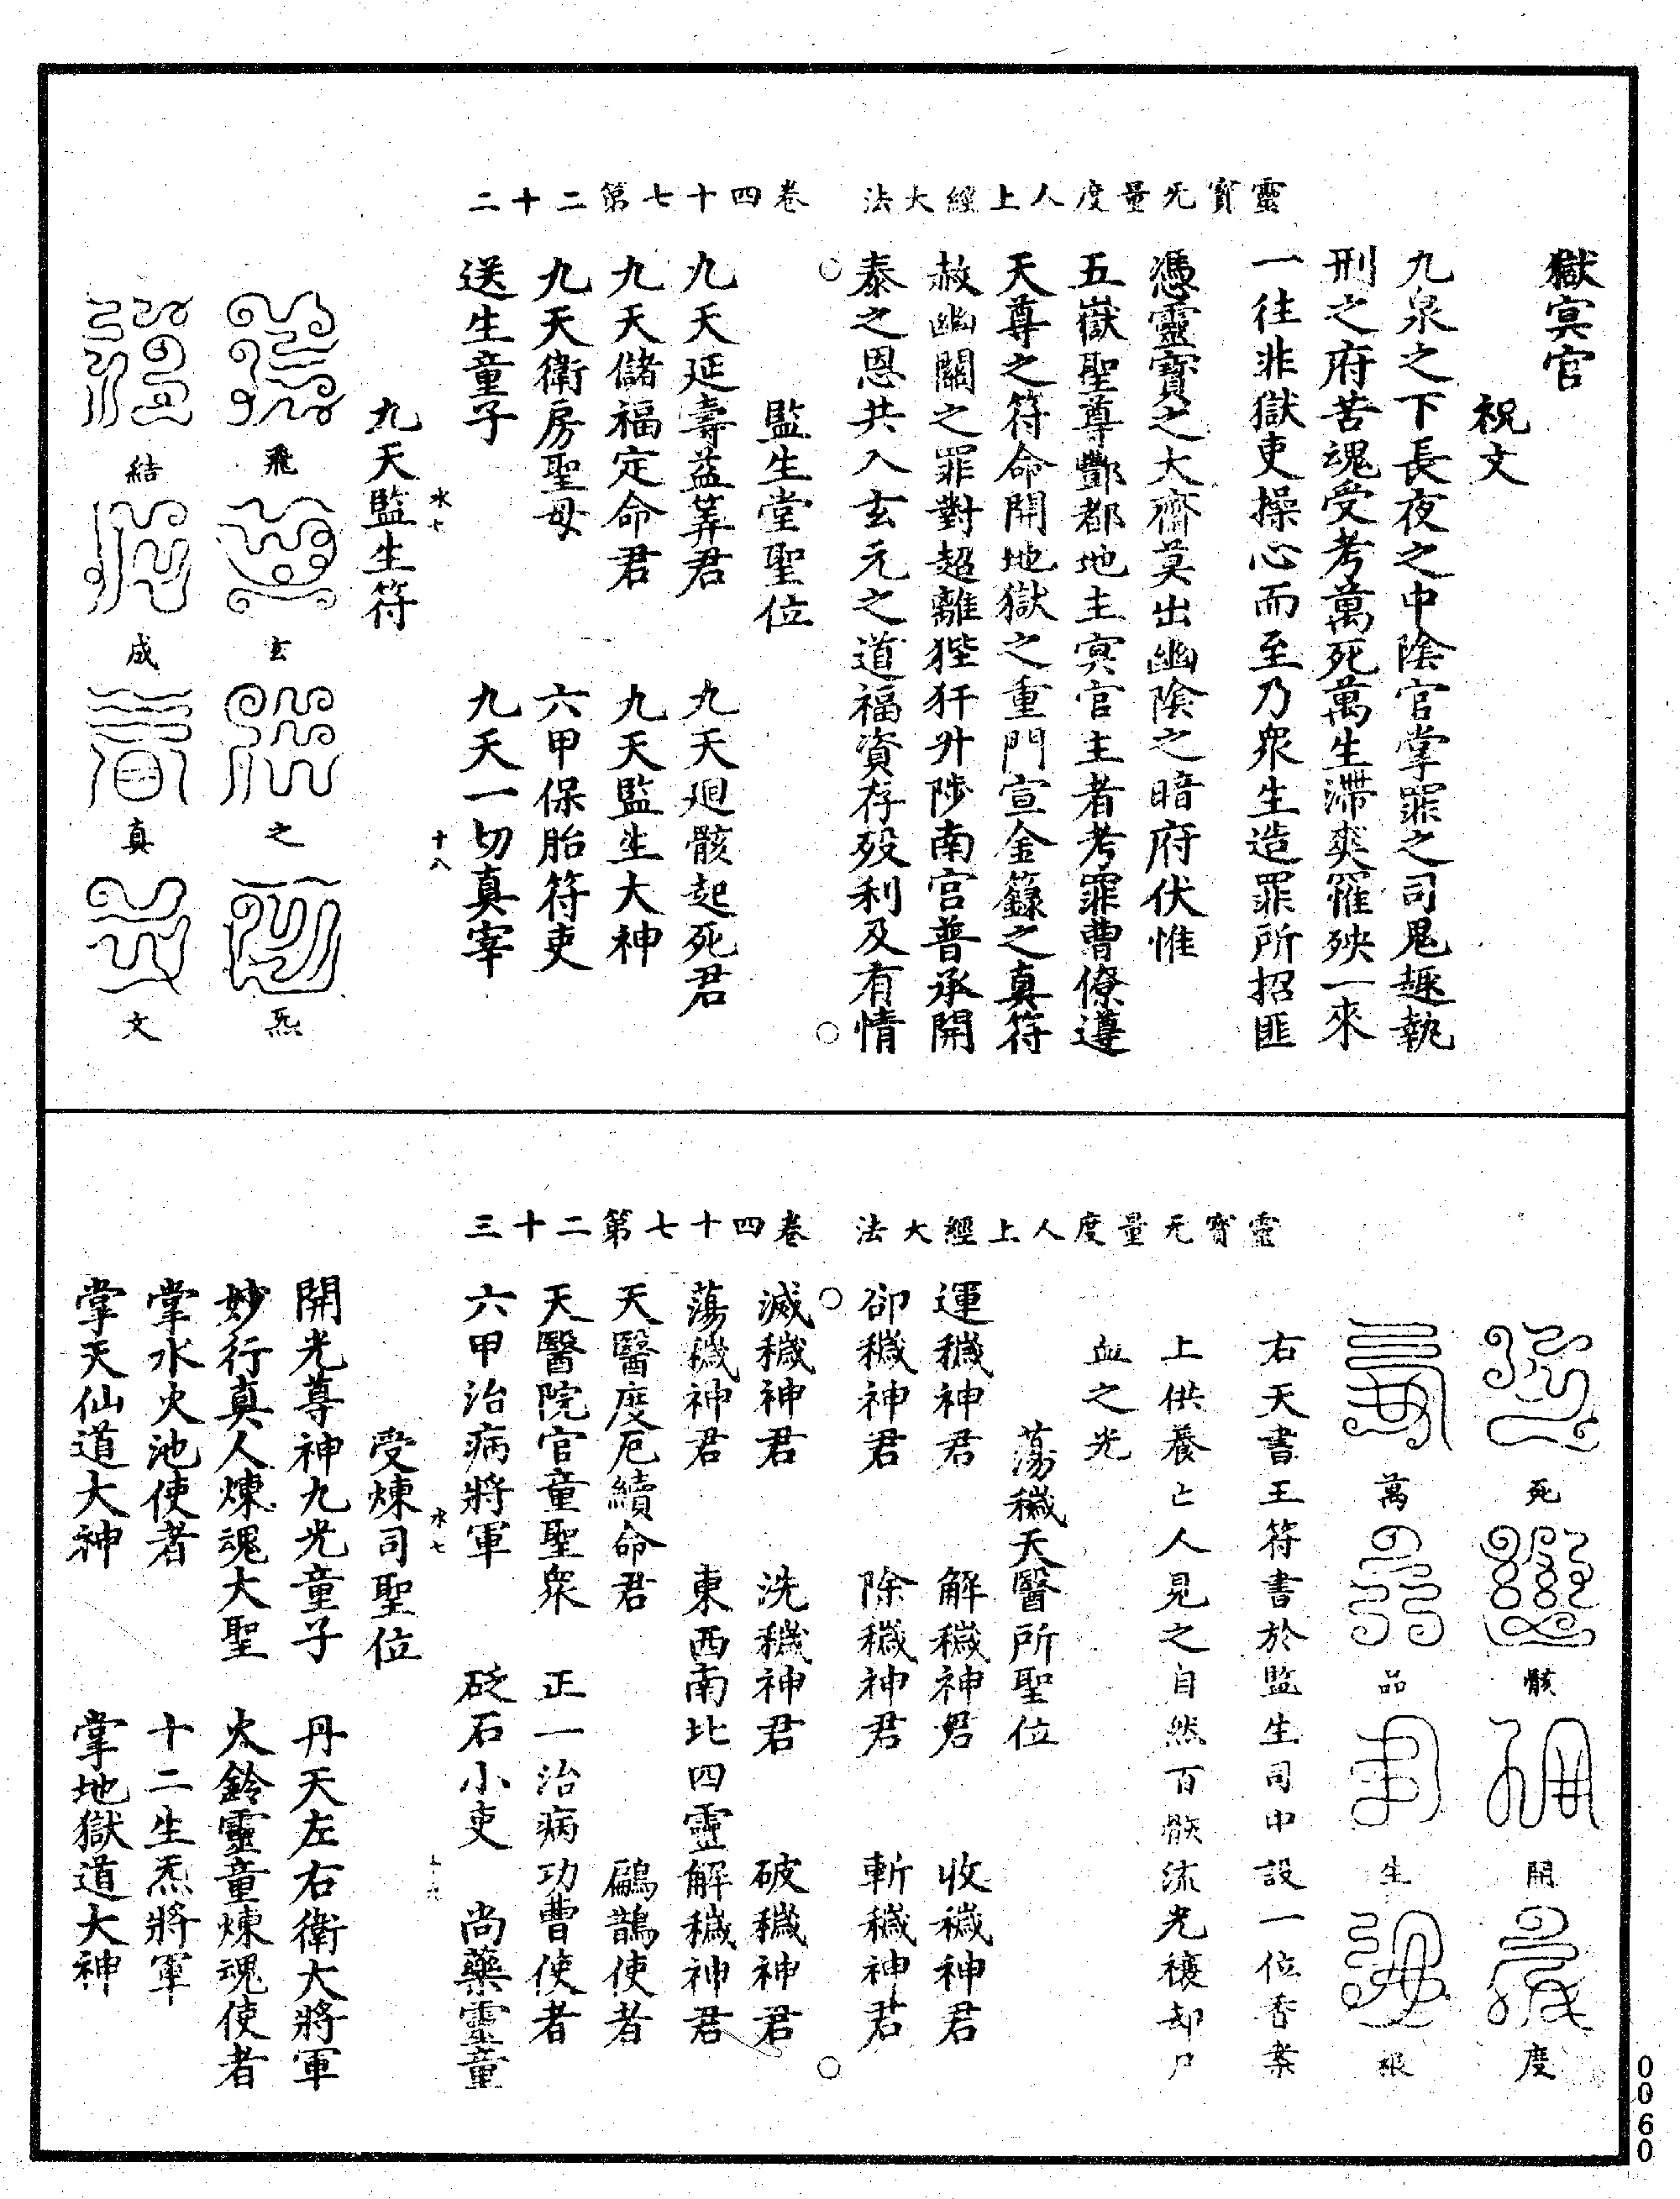 靈寶无量度人上經大法
卷四十七第二十二
獄冥官
祝文
九泉之下長夜之中陰官掌罪之司鬼趣執
刑之府苦魂受考萬死萬生滯爽罹殃一來
一往非獄吏操心而至乃衆生造罪所招匪
憑靈寶之大齋莫出幽陰之暗府伏惟
五嶽聖尊酆都地主冥官主者考罪曹僚遵
天尊之符命開地獄之重門宣金籙之真符
赦幽關之罪對超離狴犴升陟南宮普承開
泰之恩共入玄元之道福資存歿利及有情
監生堂聖位
九天延壽益筭君　九天廻骸起死君
九天儲福定命君　九天監生大神
九天衛房聖母　六甲保胎符吏
送生童子　九天一切真宰
水七　十八
九天監生符
飛　玄　之　炁
結　成　真　文
靈寶无量度人上經大法
卷四十七第二十三
死　骸　開　度
萬　品　生　根
右天書玉符書於監生司中設一位香案
上供養亡人見之自然百骸流光穢却尸
血之光
蕩穢天醫所聖位
運穢神君　解穢神君　收穢神君
卻穢神君　除穢神君　斬穢神君
滅穢神君　洗穢神君　破穢神君
蕩穢神君　東西南北四靈解穢神君
天醫度厄續命君　扁鵲使者
天醫院官童聖衆　正一治病功曹使者
六甲治病將軍　砭石小吏　尚藥靈童
水七
受煉司聖位
開光尊神九光童子　丹天左右衛大將軍
妙行真人煉魂大聖　火鈴靈童煉魂使者
掌水火池使者　十二生炁將軍
掌天仙道大神　掌地獄道大神
0060